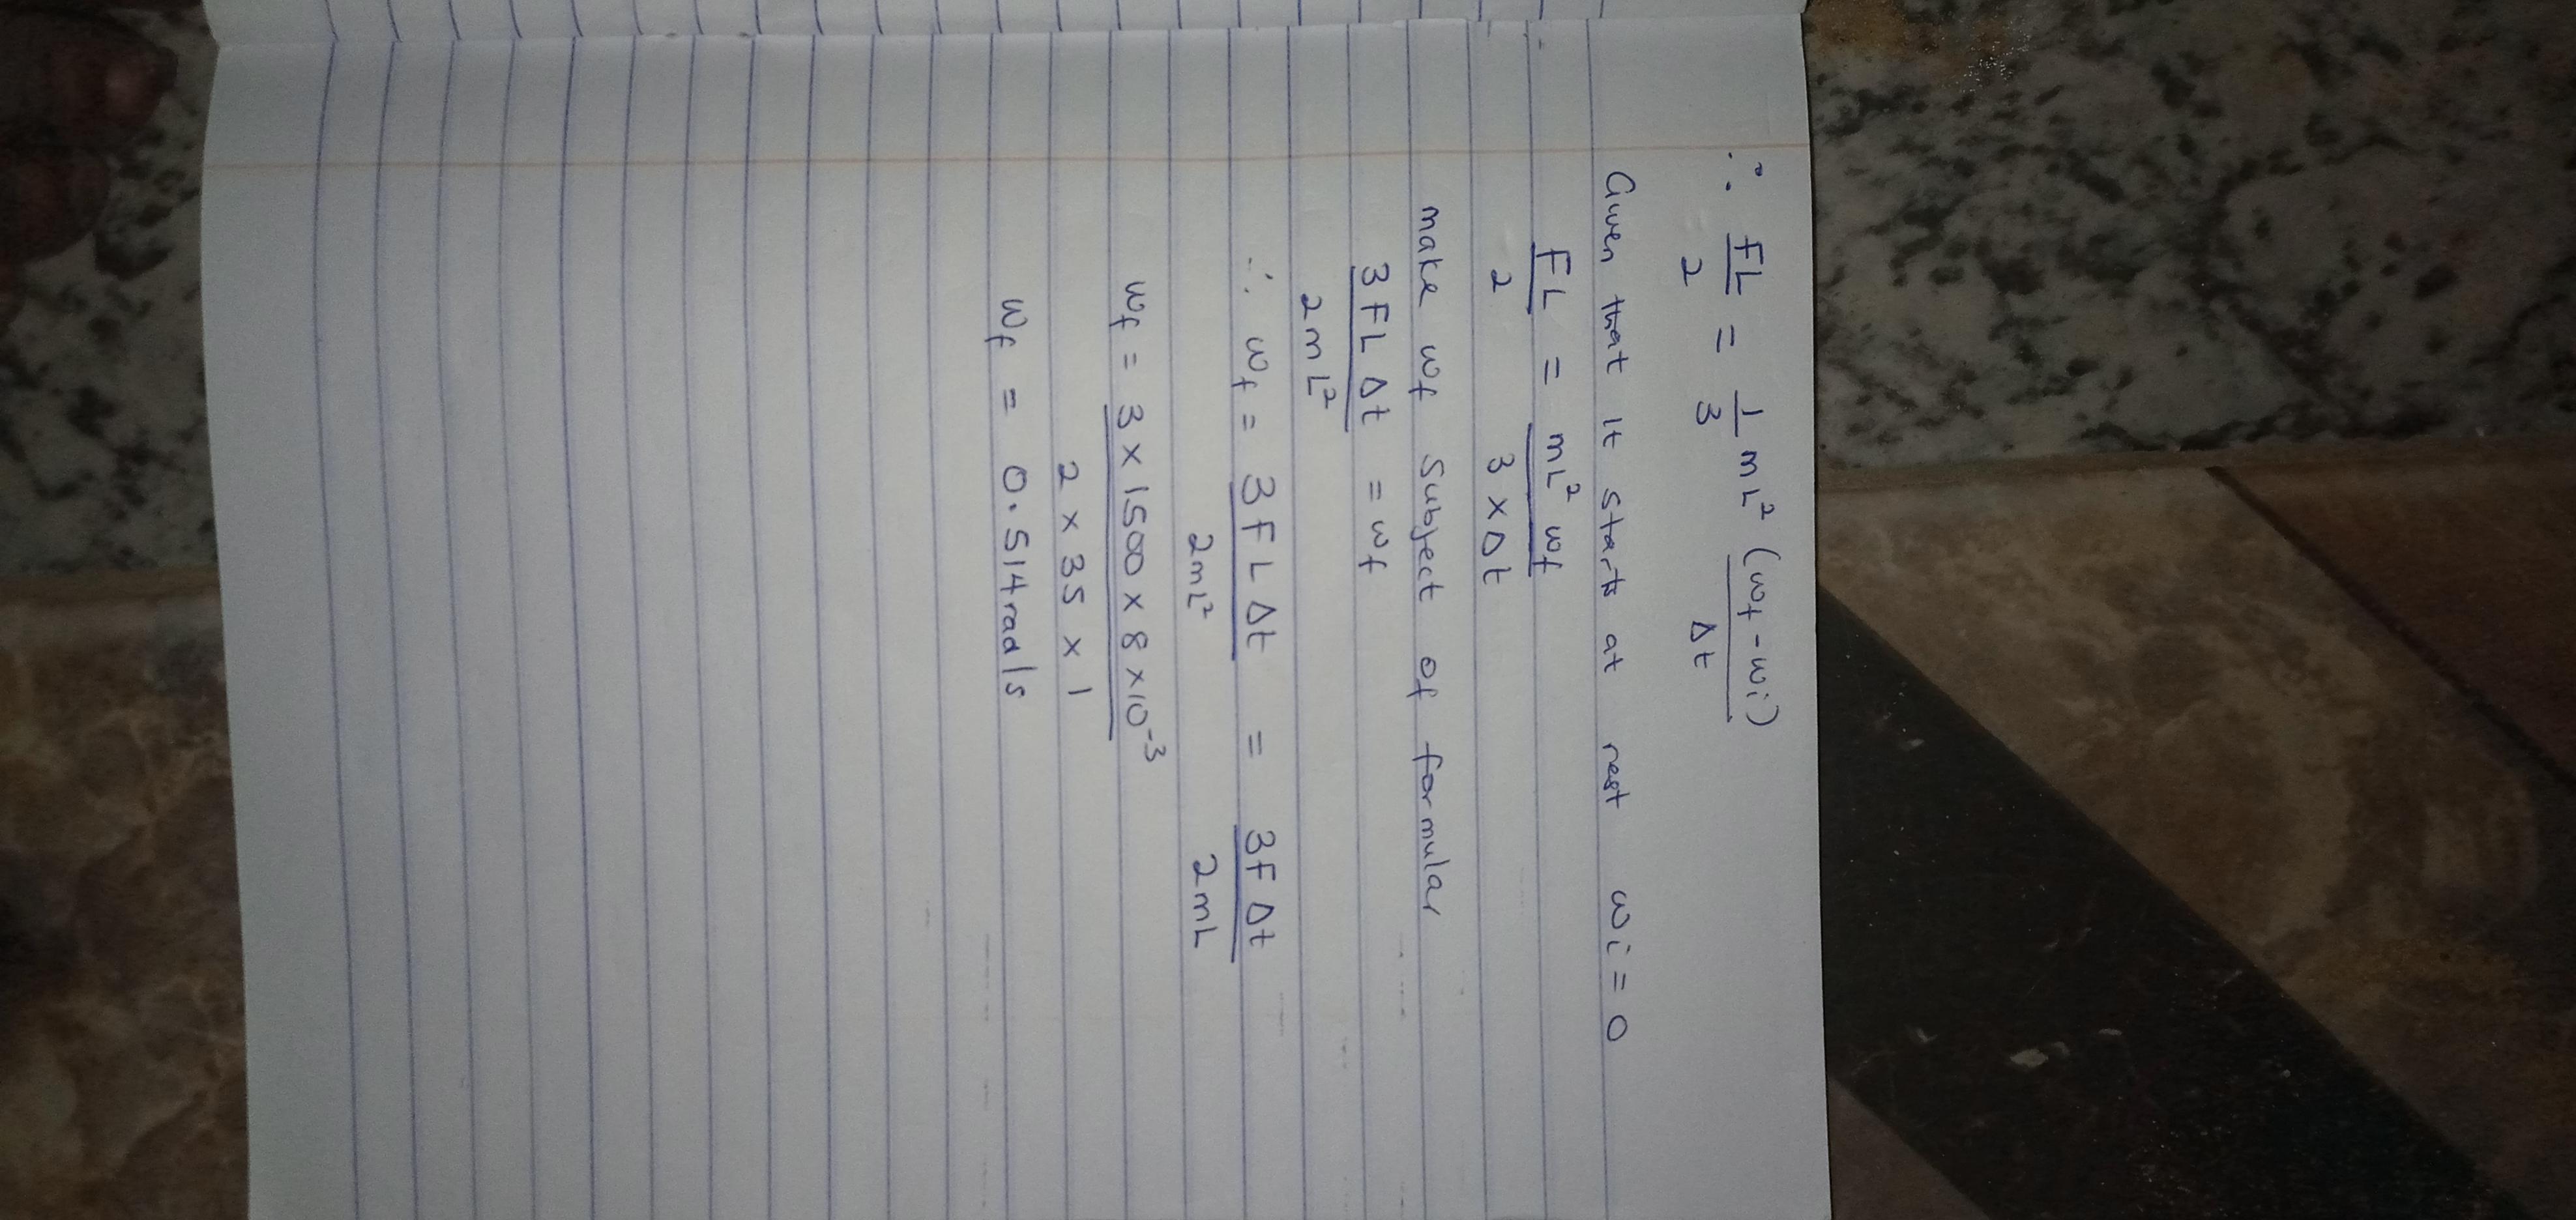 ∴ FL/2 = 1/3 mL² (ωf - ωi)/Δt
Given that It starts at rest ωi = 0
FL/2 = mL² ωf/3 × Δt
make ωf subject of formular
3FLΔt/2mL² = ωf
∴ ωf = 3FLΔt/2mL² = 3FΔt/2mL
ωf = 3 × 1500 × 8 × 10⁻³/2 × 35 × 1
ωf = 0.514rad/s